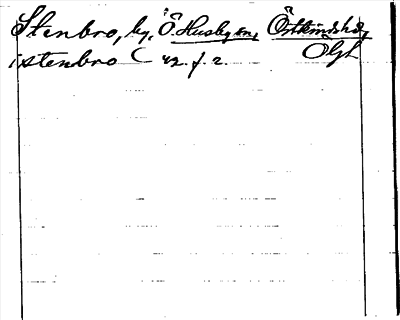 Stenbro, by, Ö. Husby sn, Östkinds hd,
i stenbro ( 42. f. 2. Ögl.